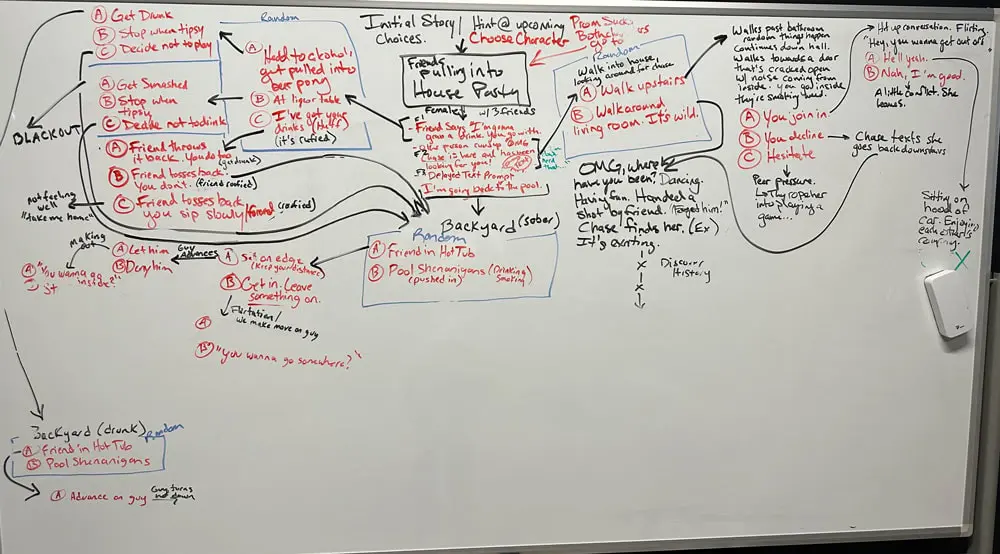 A Get Drunk
B Stop when tipsy
C Decide not to play
A Get Smashed
B Stop when
tipsy
C Decide not to drink
BLACKOUT
A Friend throws
it back. You do too
(get drunk)
B Friend tosses back.
You don't. (friend roofied)
C Friend tosses back
you sip slowly/friend (roofied)
Not feeling
well
"Take me home"
Random
A Hadd to alcohol,
got pulled into
beer pong
B At liquor table
C I've got your
drinks
(it's roofied)
Initial Story/
Choices.
Hint @ upcoming
Choose Character
Prom Sucks
go to
Friends
pulling into
House Party
Female
w/ 3 Friends
F1
- Friend Says "I'm gonna
grab a drink. You go with.
F2
Chase is here and has been
looking for you!
F3
Delayed Text Prompt
I'm going back to the pool.
Random
Walk into house,
looking around for chase
A Walk upstairs
B Walk around
living room. It's wild.
Walks past bathroom
random things happen
continues down hall.
Walks towards a door
that's cracked open
w/ noise coming from
inside. you go inside
they're smoking weed.
A You join in
B You decline
C Hesitate
Peer pressure.
into playing a
game...
Hit up conversation. Flirting.
"Hey, you wanna get out of
A Hell yeah.
B Nah, I'm good.
A little conflict. She
leaves.
Chase texts she
goes back downstairs
Sitting on
hood of
car. Enjoying
each other's
company.
X
OMG, where
have you been? Dancing.
Having fun. Handed a
shot by friend. "Forget him!"
Chase finds her. (Ex)
It's exciting.
X
X
Discover
History
Backyard (sober)
Random
A Friend in Hot Tub
B Pool Shenanigans (Drinking
(pushed in) Smoking)
A Sit on edge
(Keep your distance)
B Get in. Leave
something on.
Guy
Advances
A Let him
B Deny him
Making
out
A "You wanna go
inside?"
Flirtation/
We make move on guy
A
B "You wanna go somewhere?"
Backyard (drunk)
Random
A Friend in Hot Tub
B Pool Shenanigans
A Advance on guy
Guy turns
me down